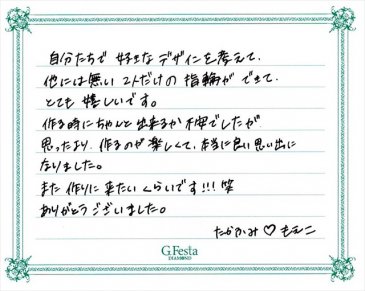 自分たちで 好きなデザインを考えて、
他には無い 2人だけの 指輪が できて、
とても 嬉しいです。
作る時にちゃんと出来るか不安でしたが
思ったより、作るのが楽しくて、本当に良い思い出に
なりました。
また 作りに来たいくらいです!!! 笑
ありがとうございました。
たかかみ♡もえこ
G.Festa
DIAMOND